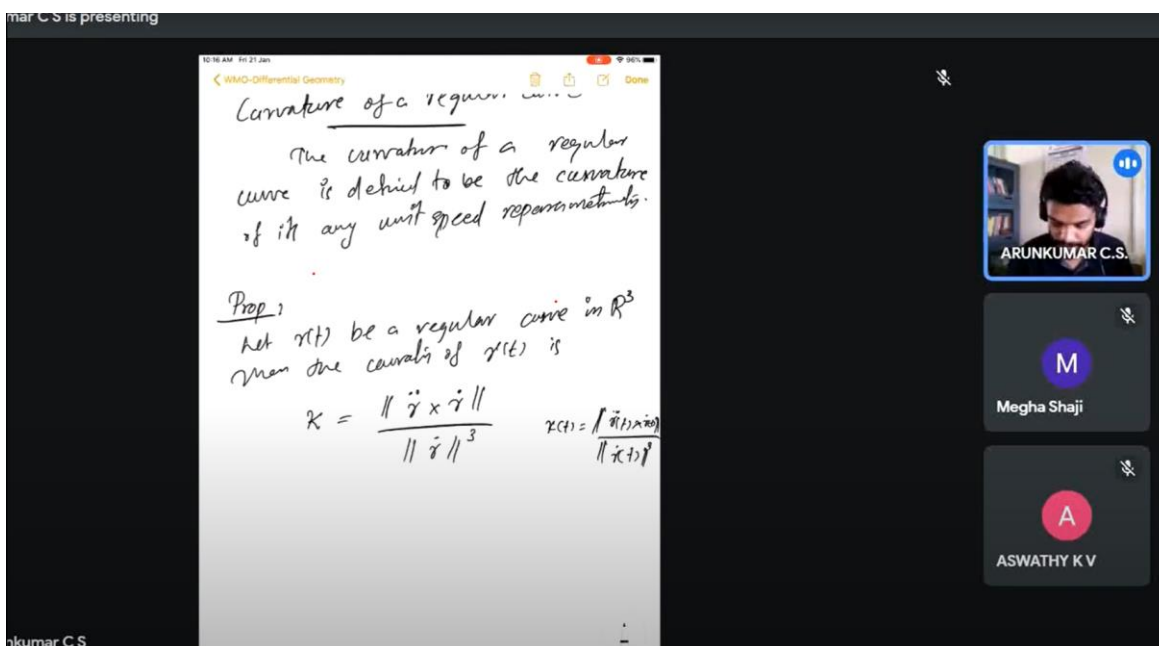 mar C S is presenting
10:16 AM Fri 21 Jan
96%
WMO-Differential Geometry
Done
Curvature of a regular
The curvature of a regular
curve is defined to be the curvature
of its any unit speed reparametrization.
Prop:
Let γ(t) be a regular curve in R³
Then the curvature of γ(t) is
κ = ‖ γ̈ × γ̇ ‖ / ‖ γ̇ ‖³
κ(t) = ‖ γ̈(t) × γ̇(t) ‖ / ‖ γ̇(t) ‖³
ARUNKUMAR C.S.
M
Megha Shaji
A
ASWATHY K V
nkumar C S